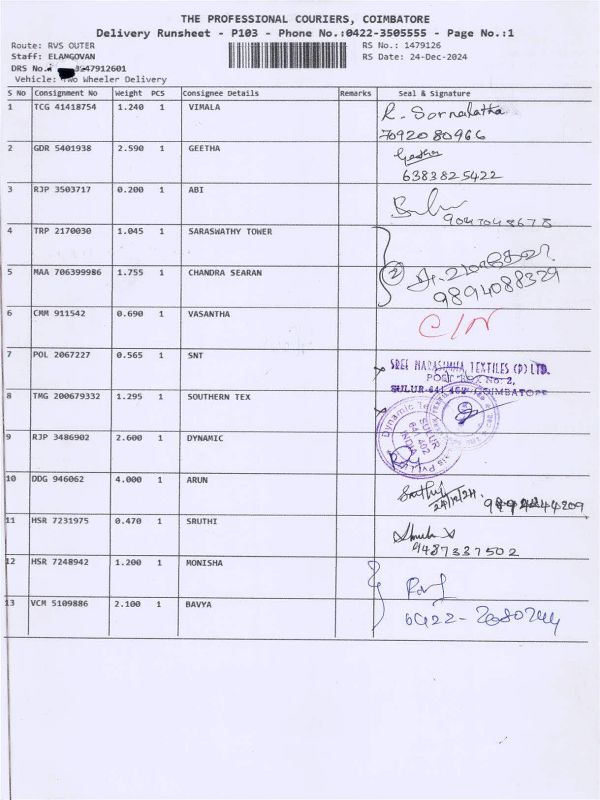 THE PROFESSIONAL COURIERS, COIMBATORE
Delivery Runsheet - P103 - Phone No.:0422-3505555 - Page No.:1
Route: RVS OUTER
RS No.: 1479126
Staff: ELANGOVAN
RS Date: 24-Dec-2024
DRS No.: 47912601
Vehicle: Two Wheeler Delivery
S No Consignment No Weight PCS Consignee Details Remarks Seal & Signature
1 TCG 41418754 1.240 1 VIMALA R. Sornalatha
7092080966
2 GDR 5401938 2.590 1 GEETHA Geetha
6383825422
3 RJP 3503717 0.200 1 ABI
9047048678
4 TRP 2170030 1.045 1 SARASWATHY TOWER
5 MAA 706399986 1.755 1 CHANDRA SEARAN 2
9894088329
6 CMM 911542 0.690 1 VASANTHA C/N
7 POL 2067227 0.565 1 SNT SREE NARASIMHA TEXTILES (P) LTD.
POST BOX No: 2,
SULUR-641 402 COIMBATORE
8 TMG 200679332 1.295 1 SOUTHERN TEX
9 RJP 3486902 2.600 1 DYNAMIC Dynamic
SULUR
641 402
INDIA
10 DDG 946062 4.000 1 ARUN Sruthi
24/12/24.
11 HSR 7231975 0.470 1 SRUTHI
9487337502
12 HSR 7248942 1.200 1 MONISHA
13 VCM 5109886 2.100 1 BAVYA 0422-2680744